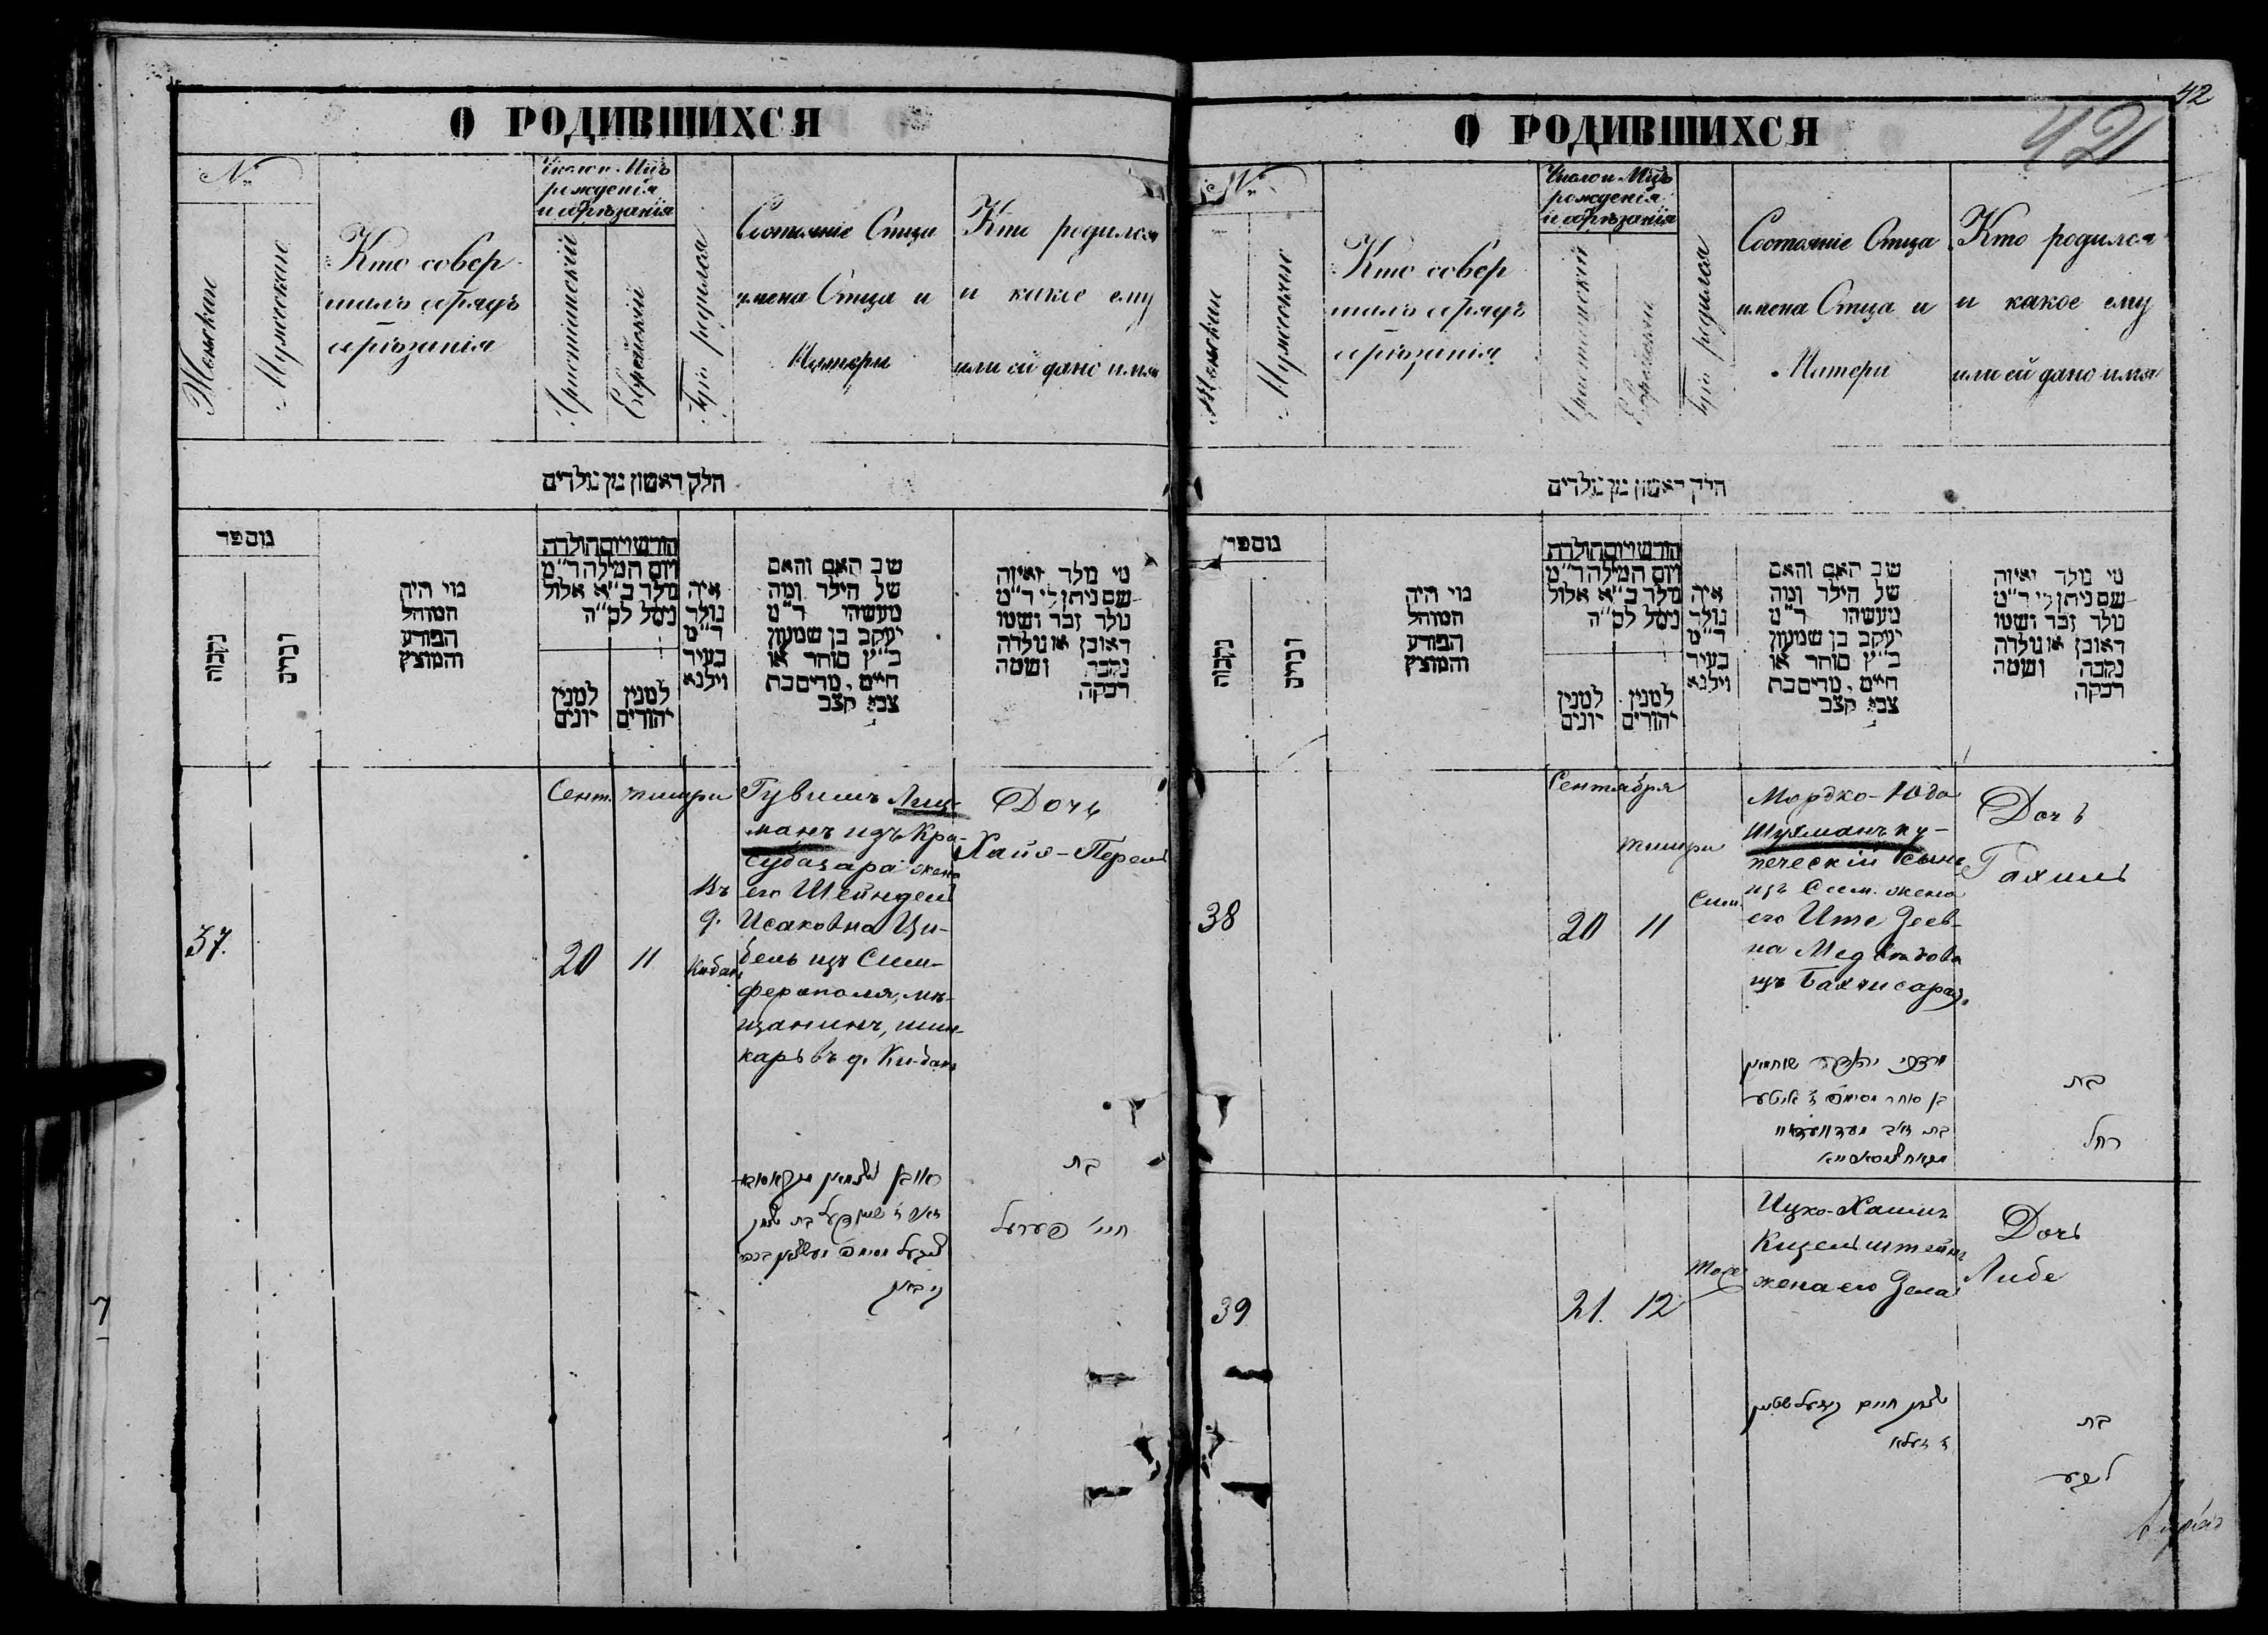 О РОДИВШИХСЯ
№
Женскаго
Мужескаго
Кто совер-
шалъ обрядъ
обрѣзанія
Число и Мцъ
рожденія
и обрѣзанія
Христіанскій
Еврейскій
Гдѣ родился
Состояніе Отца
имена Отца и
Матери
Кто родился
и какое ему
или ей дано имя
חלק ראשון מן נולדים
נומפר
נקבות
זכרים
מי היה
המוהל
הפורע
והמוצץ
חודש ויום הולדת
ויום המילה ר״מ
נולד ב״א אלול
ניסל לס״ה
למנין
יונים
למנין
יהודים
איה
נולד
ד״מ
בעיר
וילנא
שב האם והאם
של הילד ומה
מעשהו ד״מ
יעקב בן שמעון
כ״ץ סוחר או
חיים, מרים בת
צבי קצב
מי נולד ואיזה
שם ניתן לו ד״מ
נולד זכר ושמו
ראובן או נולדה
נקבה ושמה
רבקה
37.
Сент.
тишри
20
11
Въ
д.
Кибан
Рувимъ Лиц-
манъ изъ Кра-
субазара жена
его Шейндель
Исаковна Ци-
бель изъ Сим-
ферополя, мѣ-
щанинъ, шин-
карь въ д. Ки-бан
Дочь
Хайя-Перель
בת
חיי׳ פערעל
42
42
О РОДИВШИХСЯ
№
Женскаго
Мужескаго
Кто совер
шалъ обрядъ
обрѣзанія
Число и Мцъ
рожденія
и обрѣзанія
Христіанскій
Еврейскій
Гдѣ родился
Состояніе Отца
имена Отца и
Матери
Кто родился
и какое ему
или ей дано имя
חלק ראשון מן נולדים
נומפר
נקבות
זכרים
מי היה
המוהל
הפורע
והמוצץ
חודש ויום הולדת
ויום המילה ר״מ
נולד ב״א אלול
ניסל לס״ה
למנין
יונים
למנין
יהודים
איה
נולד
ד״מ
בעיר
וילנא
שב האם והאם
של הילד ומה
מעשהו ד״מ
יעקב בן שמעון
כ״ץ סוחר או
חיים, מרים בת
צבי קצב
מי נולד ואיזה
שם ניתן לו ד״מ
נולד זכר ושמו
ראובן או נולדה
נקבה ושמה
רבקה
38
Сентября
тишри
20
11
Сим.
Мордко-Юда
Шухманъ ку-
печескій сынъ
изъ Сим. жена
его Ите Зеев-
на Медвѣдова
изъ Бахчисарая.
Дочь
Рахиль
בת
רחל
39
21.
12
Тоже
Ицко-Хаимъ
Кизельштейнъ
жена его Зела
Дочь
Либе
יצחק חיים קיזעלשטיין
ז׳ זעלא
בת
ליבע